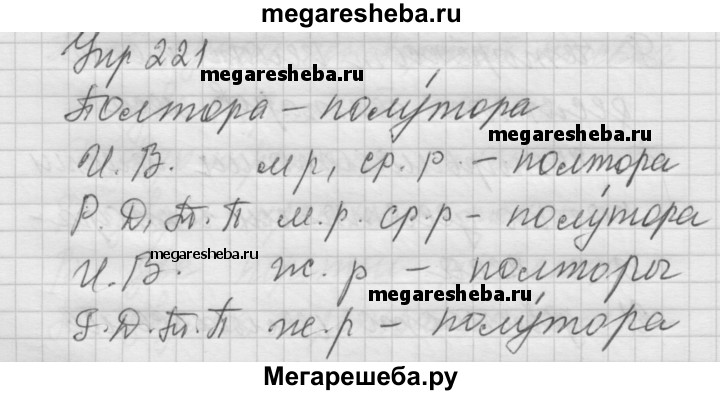 megaresheba.ru
Упр 221
megaresheba.ru
Полтора – полу́тора
megaresheba.ru
И. В. м р, ср. р. – полтора
Р. Д, Т. П м. р. ср. р – полу́тора
megaresheba.ru
И. В. ж. р – полторы
megaresheba.ru
Р. Д. Т. П ж. р – полу́тора
Мегарешеба.ру